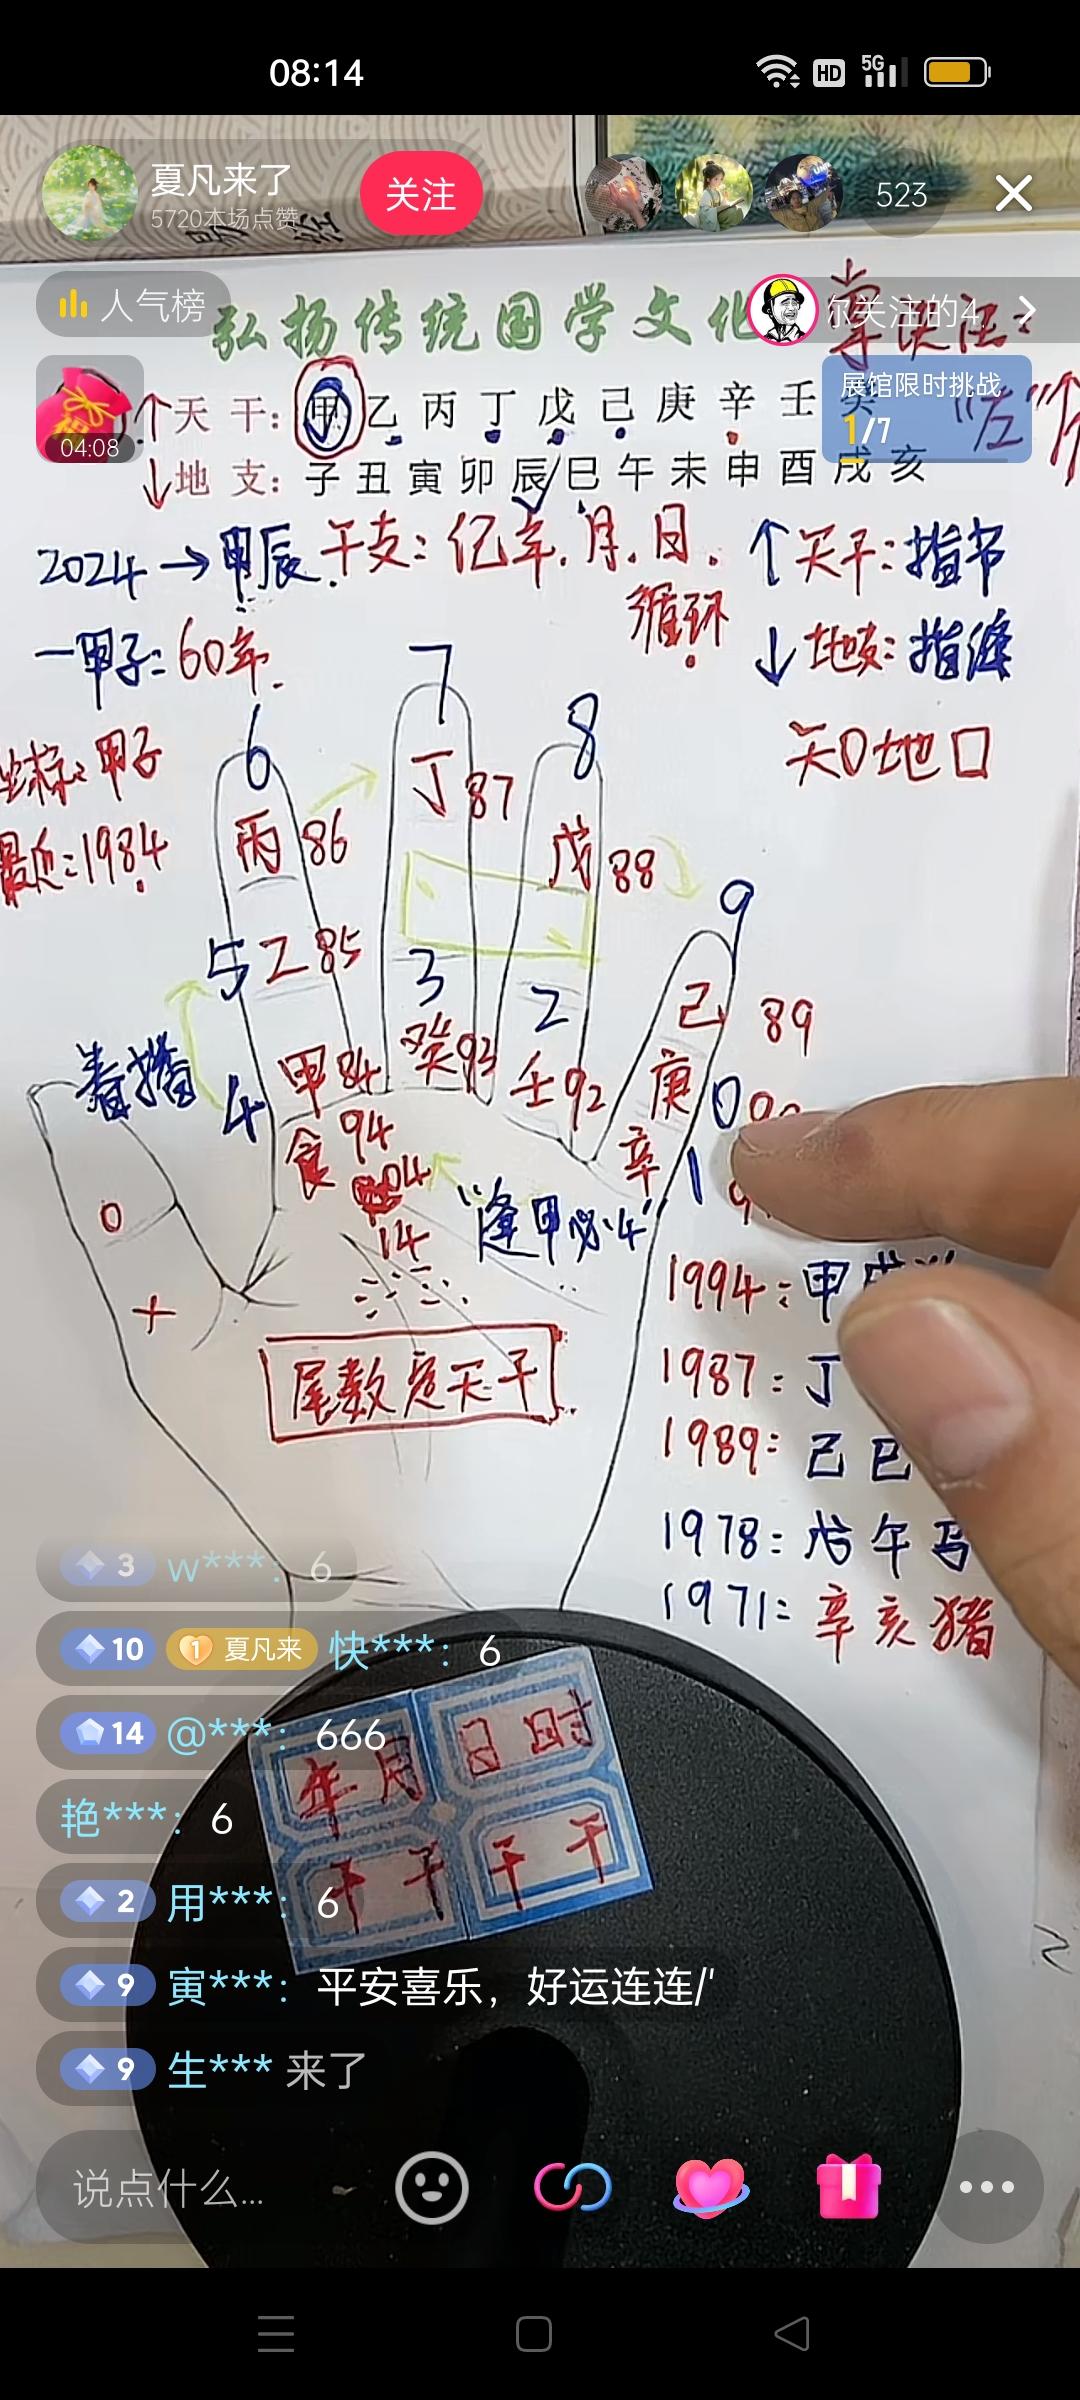 08:14
HD 5G
夏凡来了
5720本场点赞
关注
523
人气榜
弘扬传统国学文化
掌诀法:
尔关注的4...
展馆限时挑战
1/7
04:08
↑天干: 甲 乙 丙 丁 戊 己 庚 辛 壬 癸
"左"
↓地支: 子 丑 寅 卯 辰 巳 午 未 申 酉 戌 亥
2024→甲辰.
干支: 亿年.月.日.
循环
↑天干: 指节
一甲子: 60年.
↓地支: 指缝
天口地口
甲子
最近:1984
6
7
8
9
丙 86
丁 87
戊 88
己 89
5 乙 85
3
2
春播
4
甲 84
癸 93
壬 92
庚 0
食 94
04
14
辛 1
"逢甲必4"
0
+
尾数定天干
1994: 甲
1987: 丁
1989: 己巳
1978: 戊午马
1971: 辛亥猪
3 w***: 6
10 夏凡来 快***: 6
14 @***: 666
艳***: 6
2 用***: 6
9 寅***: 平安喜乐，好运连连/'
9 生*** 来了
年 月 日 时
干 干 干 干
说点什么...